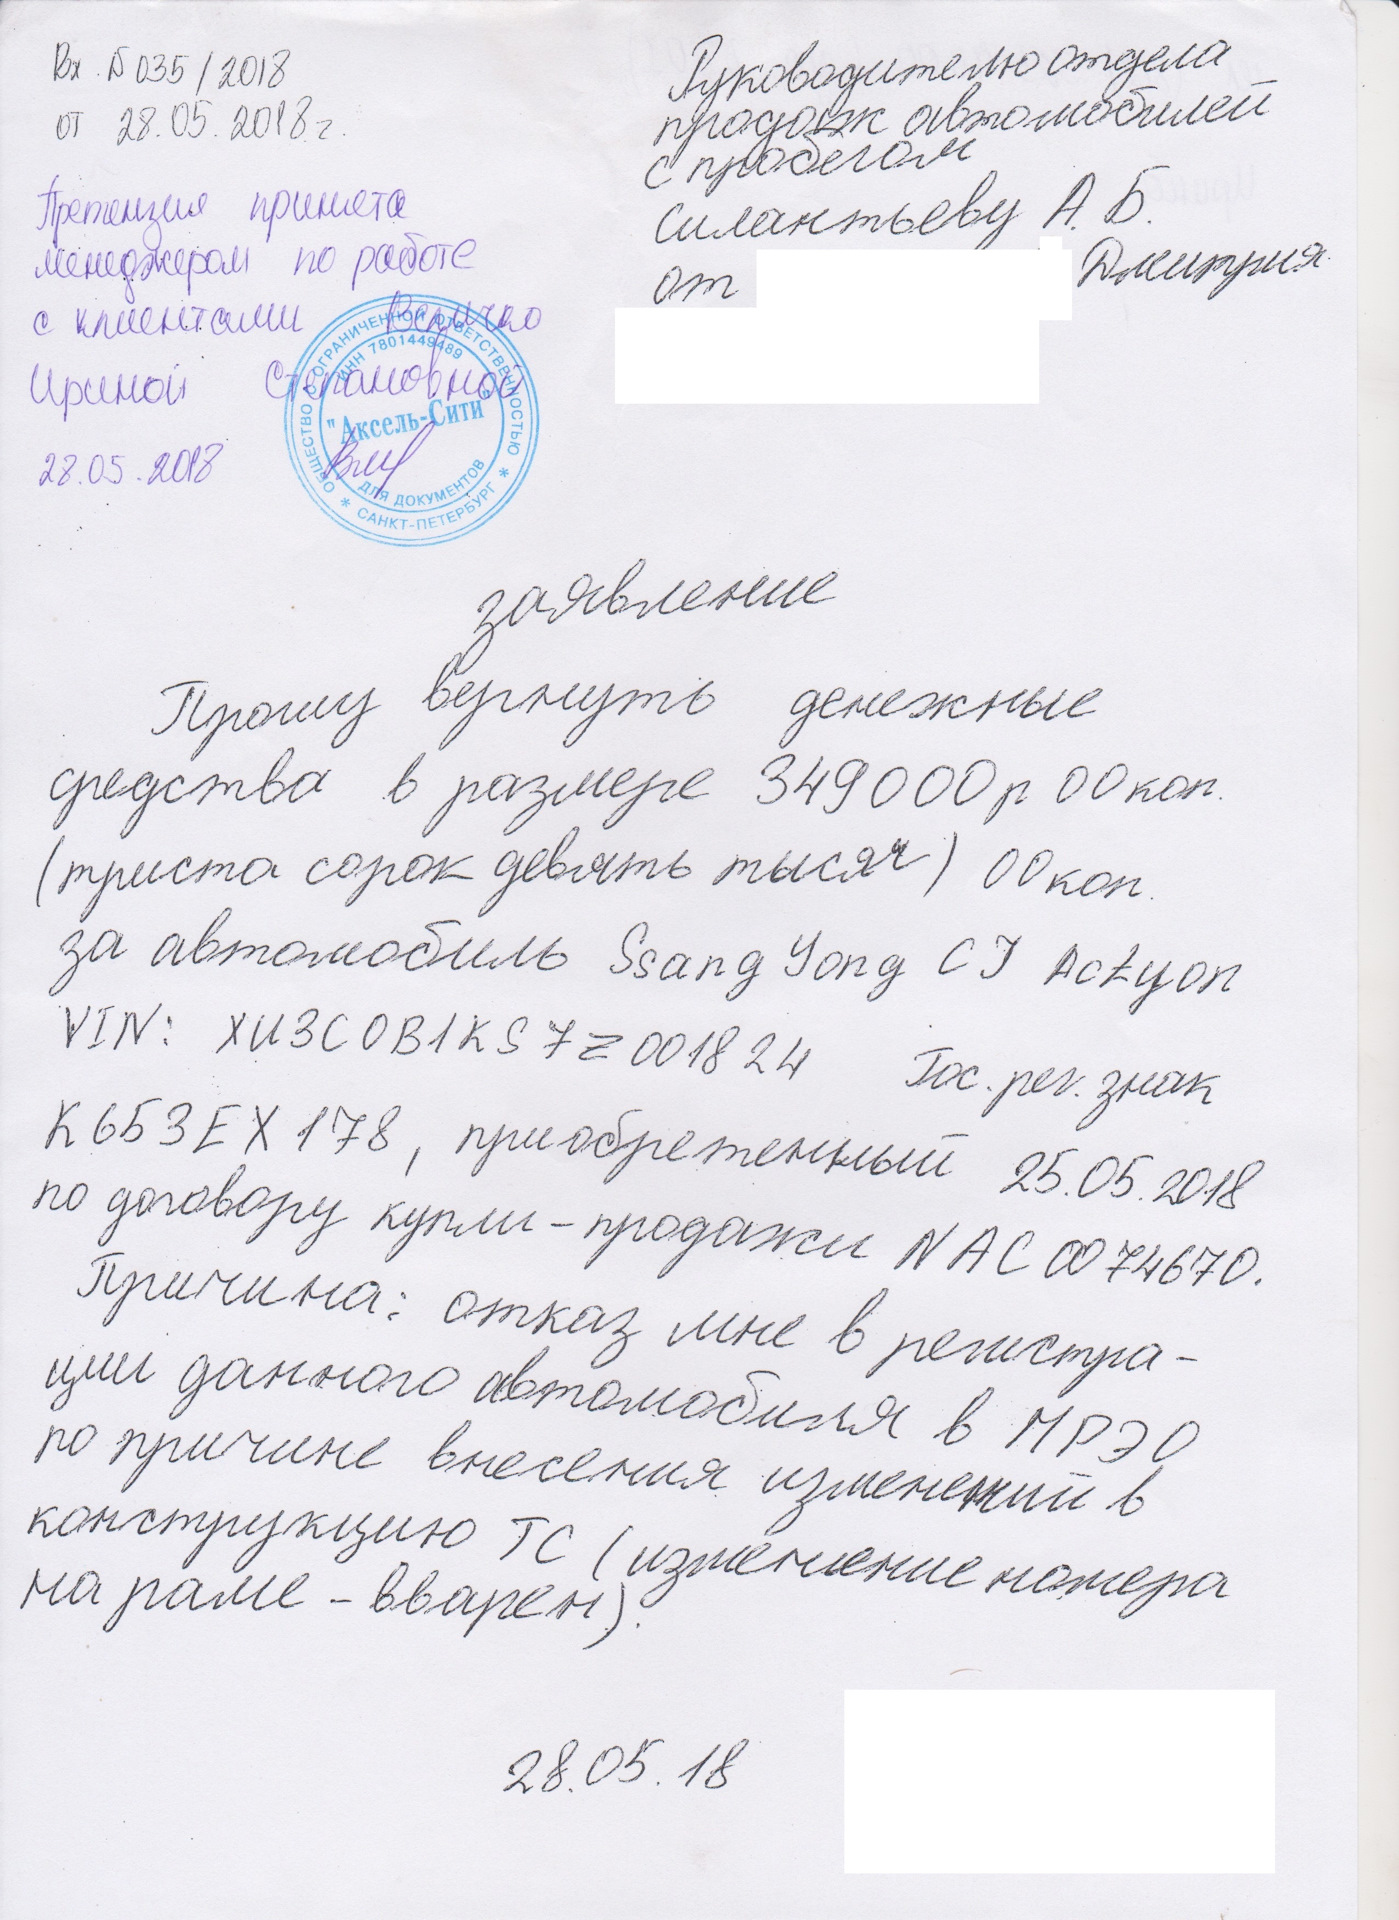 Вх. № 035/2018
от 28.05.2018 г.
Претензия принята
менеджером по работе
с клиентами
Ириной Степановной
28.05.2018
ОБЩЕСТВО С ОГРАНИЧЕННОЙ ОТВЕТСТВЕННОСТЬЮ
ИНН 7801449489
"Аксель-Сити"
ДЛЯ ДОКУМЕНТОВ
* САНКТ-ПЕТЕРБУРГ *
Руководителю отдела
продаж автомобилей
с пробегом
Силантьеву А. Б.
от Дмитрия
заявление
Прошу вернуть денежные
средства в размере 349000 р 00 коп.
(триста сорок девять тысяч) 00 коп.
за автомобиль SsangYong CJ Actyon
VIN: XU3C0B1KS7Z001824 Гос. рег. знак
К653ЕХ178, приобретенный 25.05.2018
по договору купли-продажи NAC0074670.
Причина: отказ мне в регистра-
ции данного автомобиля в МРЭО
по причине внесения изменений в
конструкцию ТС (изменение номера
на раме - вварен).
28.05.18